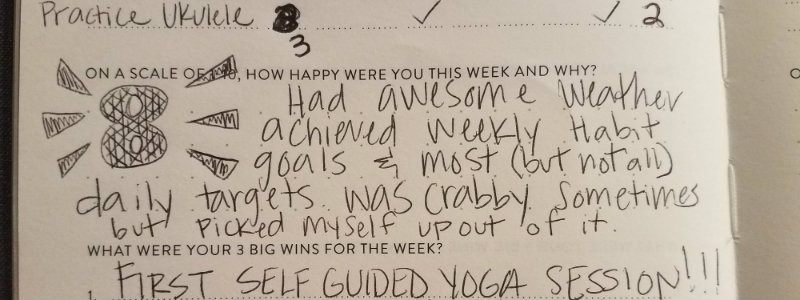 Practice Ukulele 3 ✓ ✓ 2
3
ON A SCALE OF 1-10, HOW HAPPY WERE YOU THIS WEEK AND WHY?
8 Had awesome weather
achieved weekly Habit
goals & most (but not all)
daily targets. was crabby sometimes
but picked myself up out of it.
WHAT WERE YOUR 3 BIG WINS FOR THE WEEK?
1. FIRST SELF GUIDED YOGA SESSION!!!